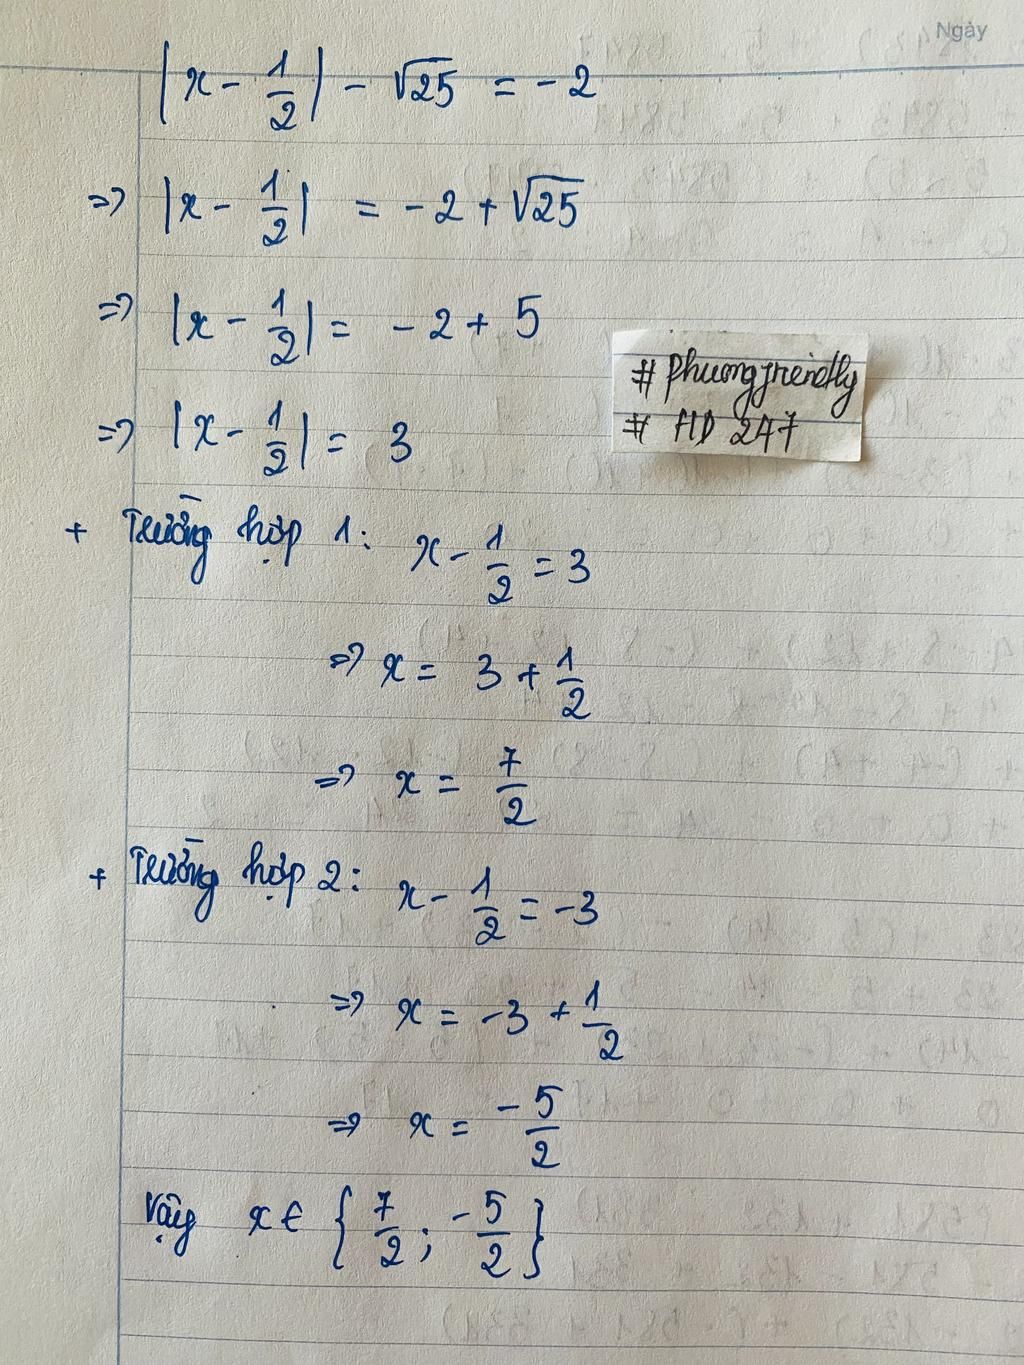 Ngày
|x - 1/2| - √25 = -2
=> |x - 1/2| = -2 + √25
=> |x - 1/2| = -2 + 5
=> |x - 1/2| = 3
# phuongfriendly
# HD 247
+ Trường hợp 1: x - 1/2 = 3
=> x = 3 + 1/2
=> x = 7/2
+ Trường hợp 2: x - 1/2 = -3
=> x = -3 + 1/2
=> x = -5/2
Vậy x ∈ {7/2; -5/2}